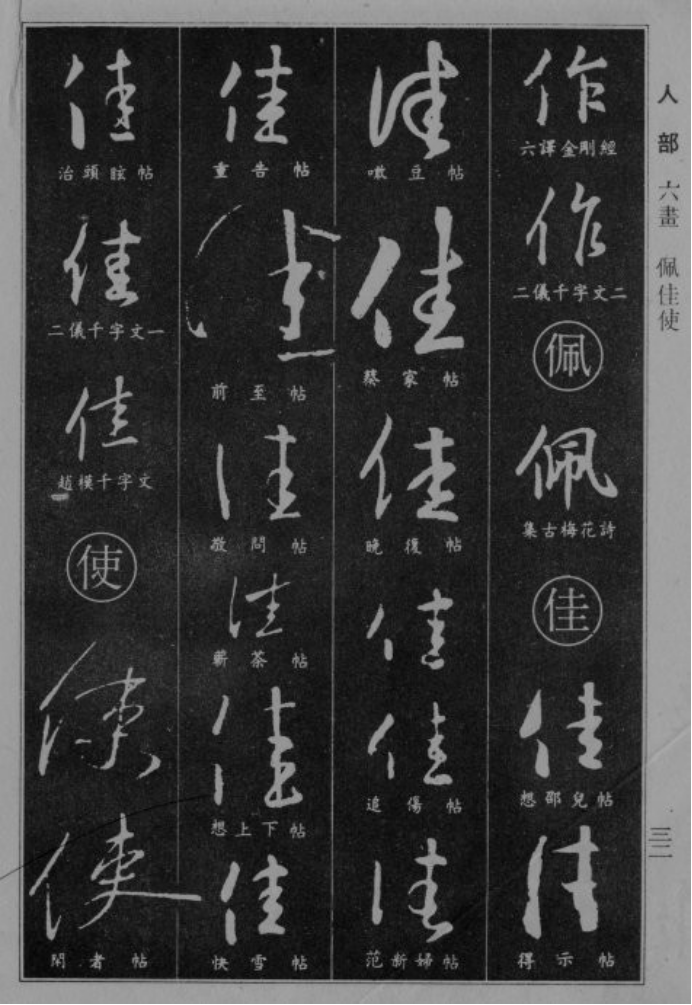 人部 六畫 佩佳使
三二
作
六譯金剛經
作
二儀千字文二
佩
佩
集古梅花詩
佳
佳
想邵兒帖
佳
得示帖
佳
噉豆帖
佳
蔡家帖
佳
晚復帖
佳
佳
追傷帖
佳
范新婦帖
佳
重告帖
佳
前至帖
佳
敬問帖
佳
蘄茶帖
佳
想上下帖
佳
快雪帖
佳
治頭眩帖
佳
二儀千字文一
佳
趙模千字文
使
使
使
者帖